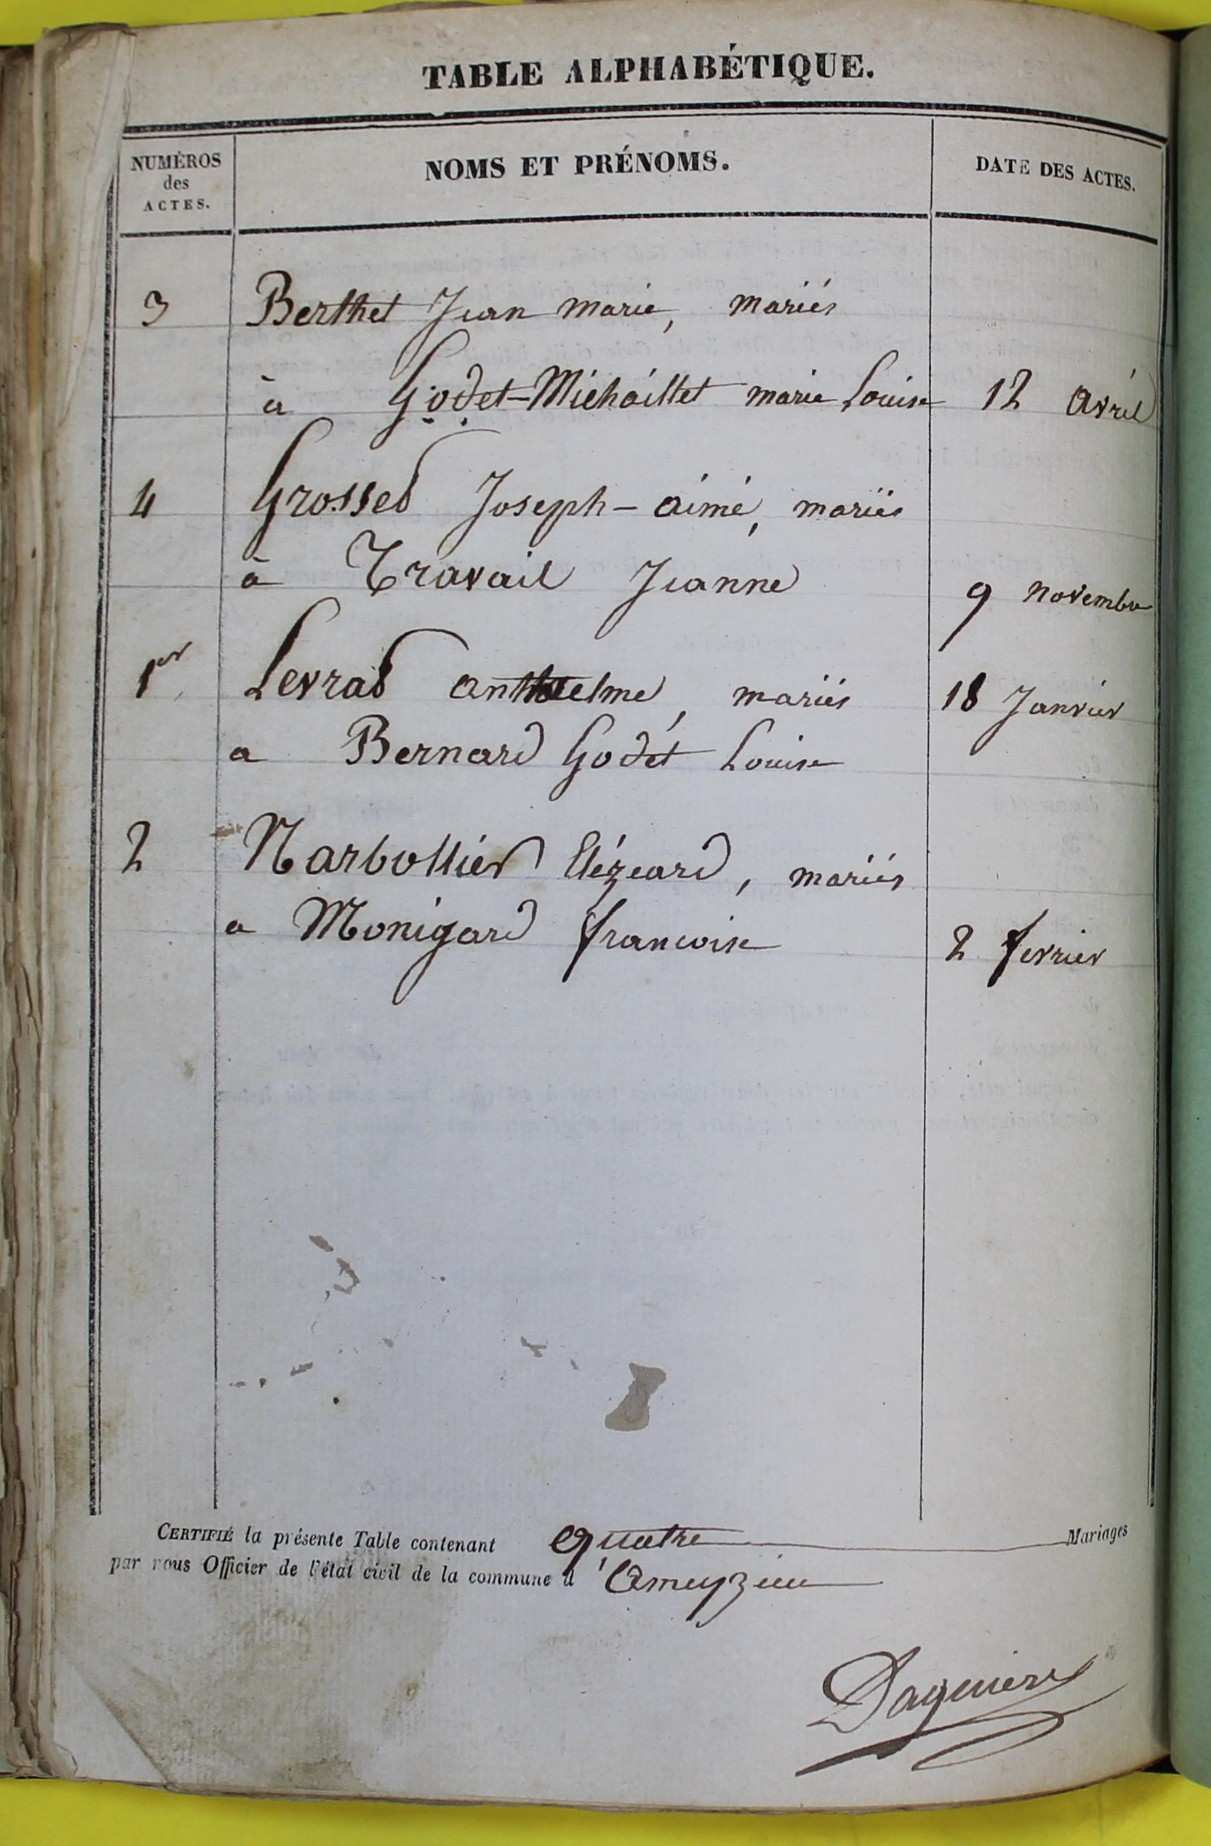 TABLE ALPHABÉTIQUE.
NUMÉROS
des
ACTES.
NOMS ET PRÉNOMS.
DATE DES ACTES.
3 Berthet Jean marie, mariés
à Godet-Michaillet marie Louise 12 avril
4 Grosset Joseph-aimé, mariés
à Travail Jeanne 9 novembre
1er Levrat anthelme, mariés 18 Janvier
a Bernard Godet Louise
2 Narbollier Elézeard, mariés
a Monigard francoise 2 fevrier
CERTIFIÉ la présente Table contenant quatre Mariages
par nous Officier de l'état civil de la commune d'Ameyzieu